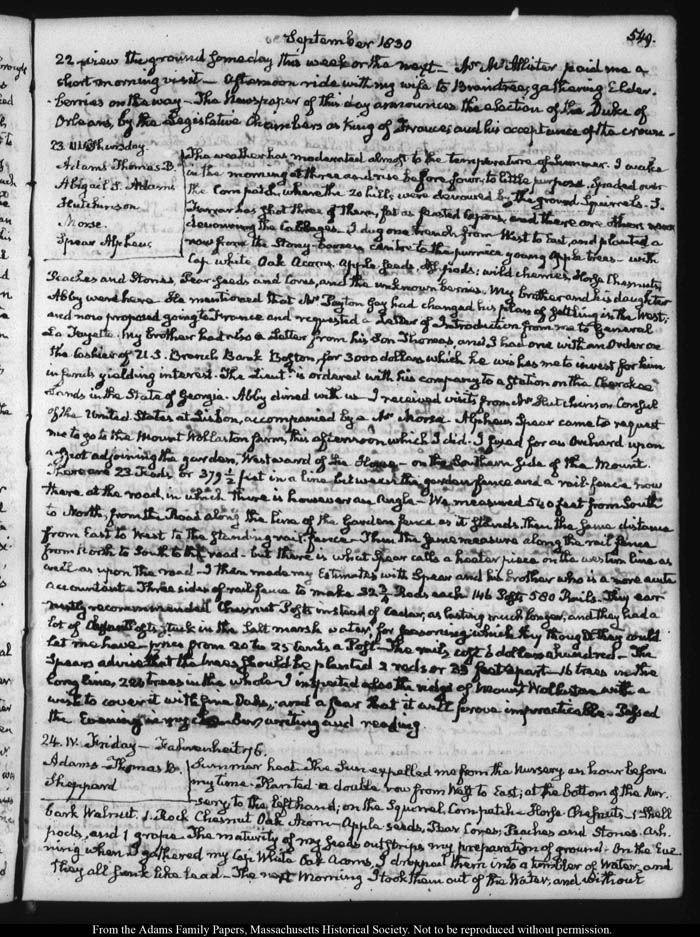 September 1830
549.
22 view the ground some day this week or the next — Mr McAllister paid me a
short morning visit — Afternoon ride with my wife to Braintree, gathering Elder-
berries on the way — The Newspaper of this day announces the election of the Duke of
Orleans, by the Legislative Chambers as King of France, and his acceptance of the crown —
23. Thursday.
Adams Thomas B.
Abigail S. Adams
Hutchinson
Morse.
Spear Alpheus
The weather has moderated almost to the temperature of Summer. I awake
in the morning at three and rise before four, to little purpose. Spaded over
the Corn patch, where the 20 hills were devoured by the ground Squirrels. J.
Farrar has shot three of them, fat as feasted Capons, and there are others now
devouring the Cabbages. I dug one trench from West to East, and planted a
row from the Stoney-bottom centre to the purrice young Apple trees — with
Cup white Oak Acorns, Apple seeds, Ash pods; wild cherries, Horse Chesnuts,
Peaches and Stones, Pear seeds and Cores, and the unknown berries. My brother and his daughter
Abby were here. He mentioned that Mr Payton Gay had changed his plan of settling in the West;
and now proposed going to France and requested a Letter of Introduction from me to General
La Fayette. My brother had also a Letter from his Son Thomas, and I had one with an Order on
the Cashier of U.S. Branch Bank Boston, for 3000 dollars which he wishes me to invest for him
in funds yielding interest. The Lieut.t is ordered with his company to a Station on the Cherokee
Lands in the State of Georgia. Abby dined with us — I received visits from Mr Hutchinson Consul
of the United States at Lisbon, accompanied by a Mr Morse. Alpheus Spear came to request
me to go to the Mount Wollaston farm, this afternoon which I did. I fixed for an Orchard upon
a spot adjoining the garden, Westward of the House — on the Southern side of the Mount.
There are 23 Rods or 379 ½ feet in a line between the garden fence and a rail-fence now
there, at the road, in which there is however an Angle — We measured 540 feet from South
to North, from the Road along the line of the Garden fence as it stands, Then the same distance
from East to West to the Standing rail-fence — Then the same measure along the rail fence
from North to South to the road — but there is what Spear calls a heater piece on the western line as
well as upon the road. I then made my Estimates with Spear and his brother who is a more acute
accountant. Three sides of rail fence to make 32 ⅔ Rods each 146 Posts 580 Rails. They ear-
nestly recommended Chesnut Posts instead of Cedar, as lasting much longer, and they had a
lot of Chesnut Posts, stuck in the salt marsh water, for seasoning which they thought they could
let me have — price from 20 to 25 Cents a Post — The rails cost 6 dollars a hundred — The
Spears advise that the trees should be planted 2 rods or 33 feet apart — 16 trees in the
long line, 223 trees in the whole — I inspected also the ridge of Mount Wollaston with a
wish to cover it with fine Oaks; and a fear that it will prove impracticable — Passed
the Evening in my chamber, writing and reading.
24. IV. Friday — Fahrenheit 76.
Adams — Thomas B.
Sheppard
Summer heat. The Sun expelled me from the Nursery an hour before
my time. Planted a double row from West to East; at the bottom of the Nur-
sery to the left hand; on the Squirrel Corn patch — Horse Chesnuts — 1 Shell
bark Walnut. 1. Rock Chesnut Oak Acorn — Apple seeds, Pear Cores; Peaches and Stones. Ash
pods, and 1 grape. The maturity of my seeds outstrips my preparation of ground. On the Eve-
ning when I gathered my Cup White Oak Acorns, I dropped them into a tumbler of Water, and
they all sunk like lead — The next Morning I took them out of the Water, and without
From the Adams Family Papers, Massachusetts Historical Society. Not to be reproduced without permission.